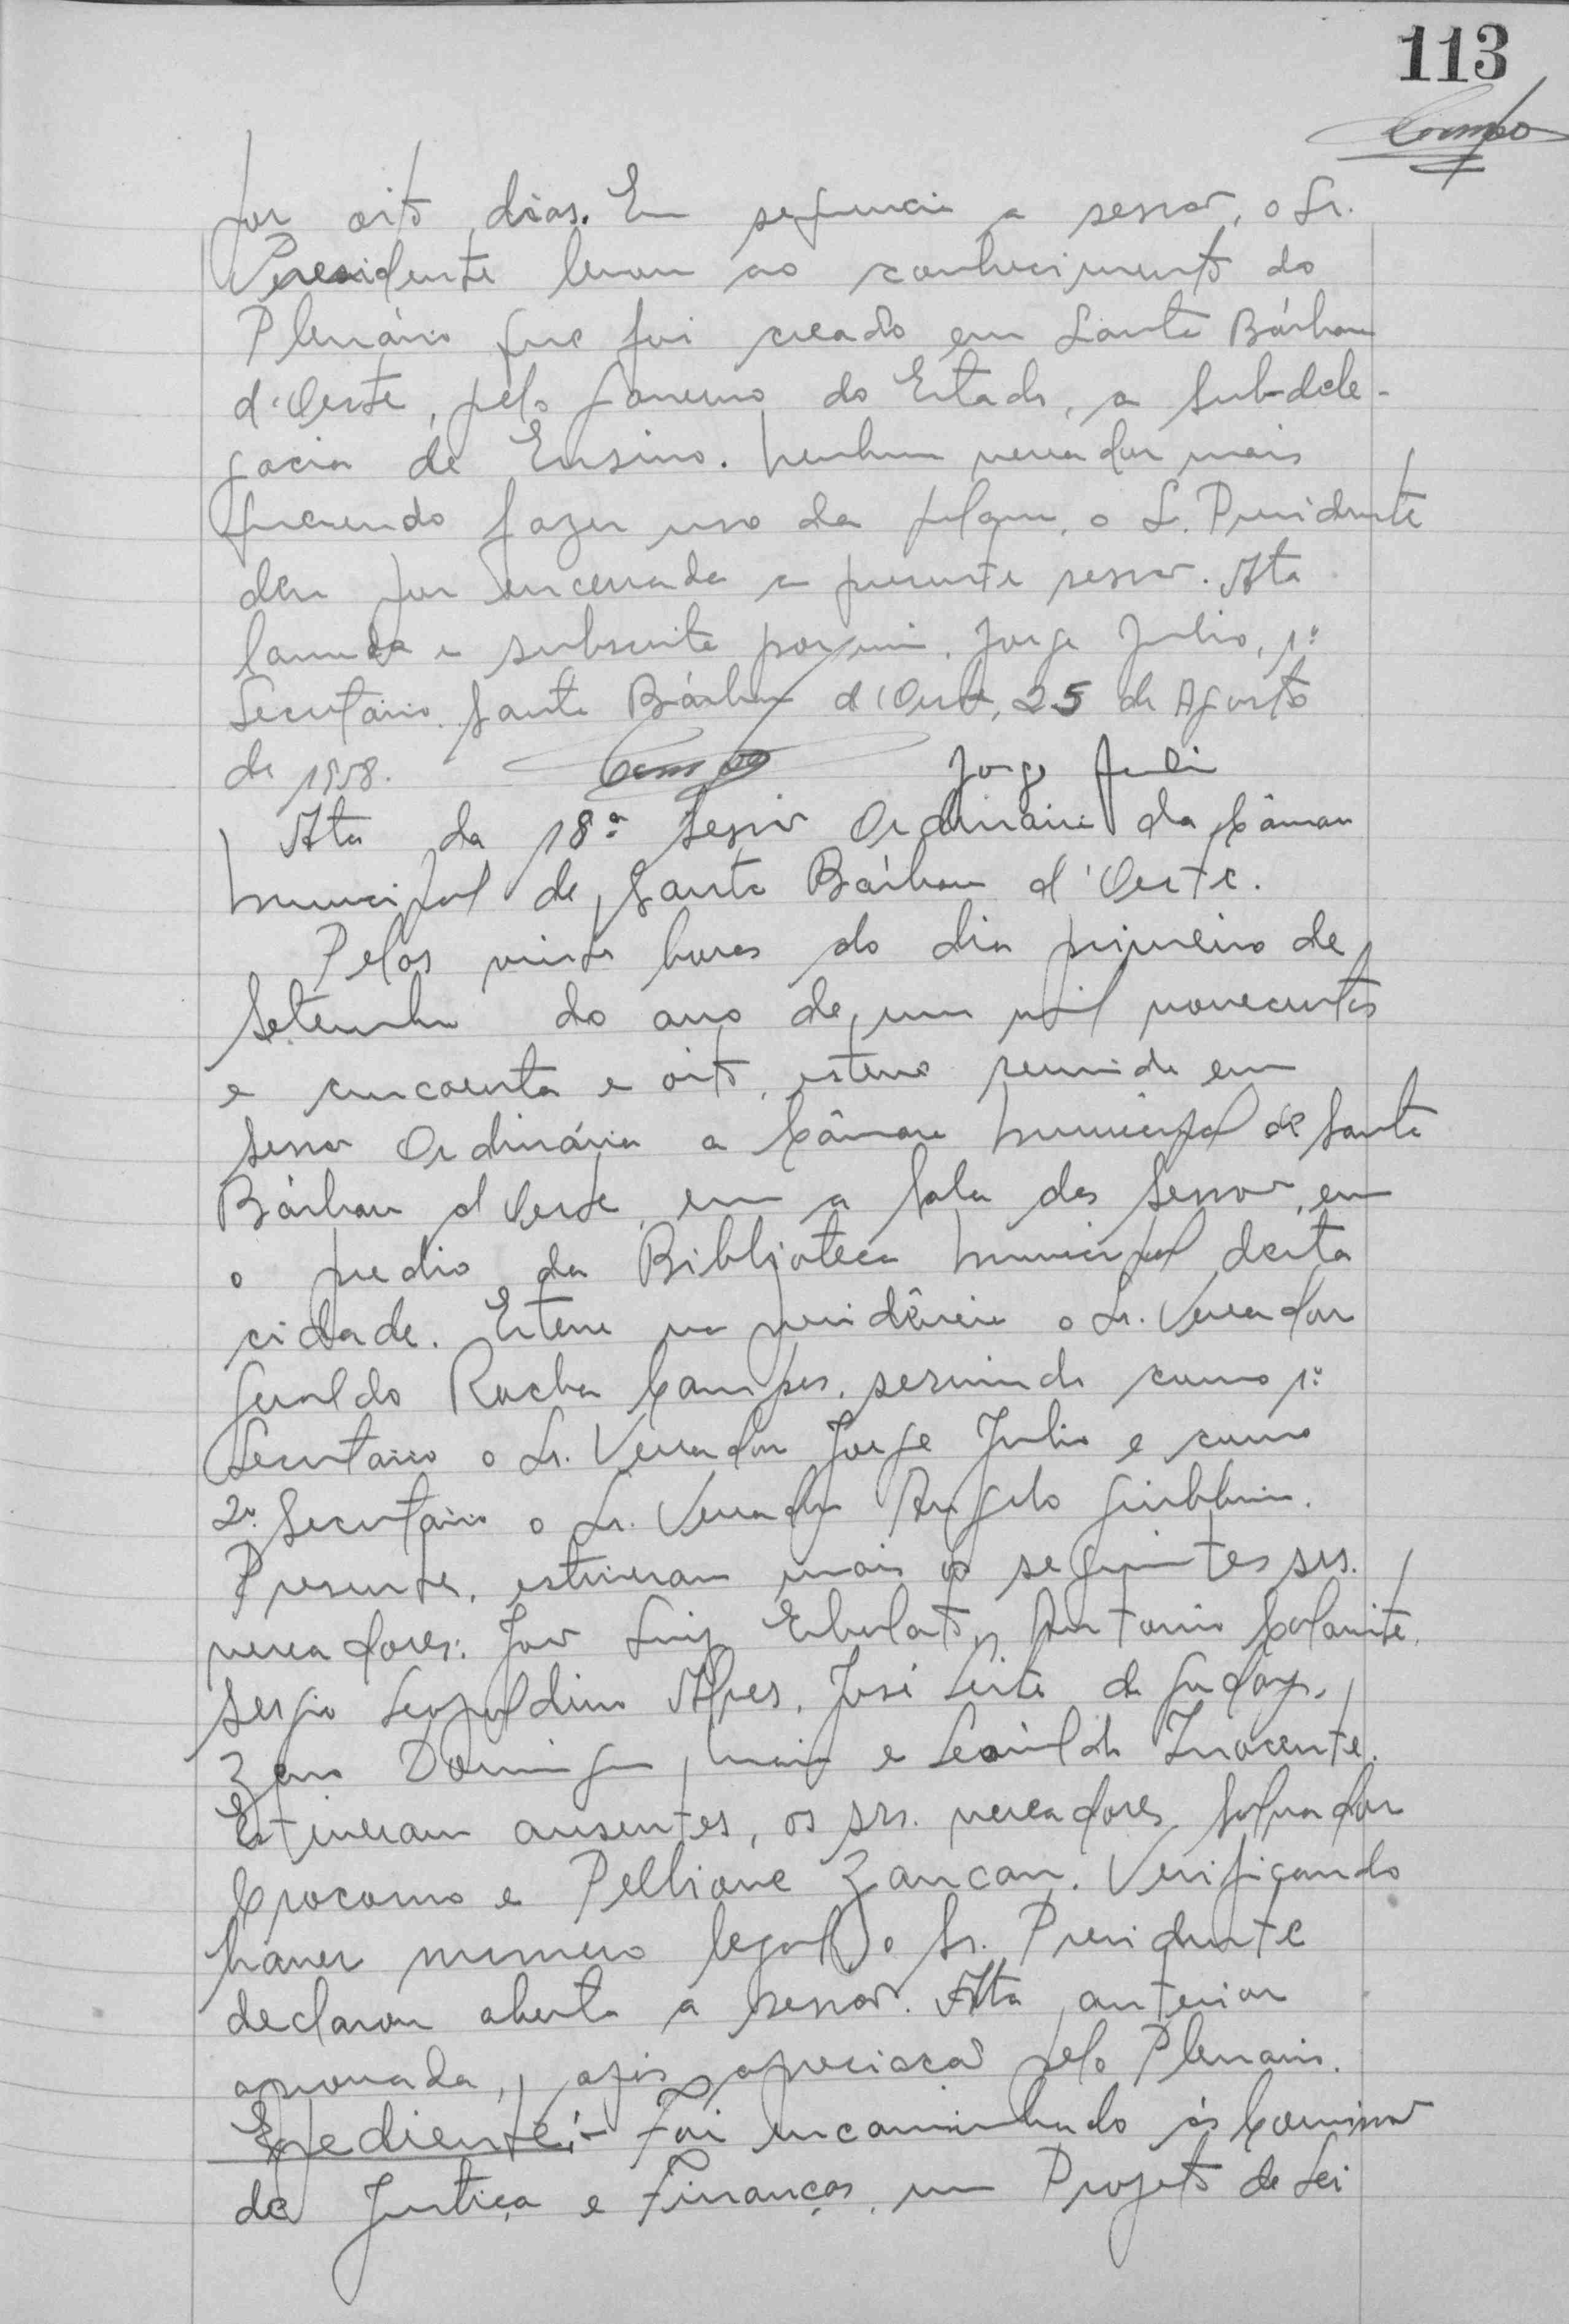 113
Campos
por oito dias. Em sequencia a sessão, o Sr.
Presidente levou ao conhecimento do
Plenário que foi creado em Santa Bárbara
d'Oeste, pelo Governo do Estado, a Sub-dele-
gacia de Ensino. Nenhum vereador mais
querendo fazer uso da palavra, o Sr. Presidente
deu por encerrada a presente sessão. Ata
lavrada e subscrita por mim, Jorge Julio, 1º
Secretário. Santa Bárbara d'Oeste, 25 de Agosto
de 1958. Campos Jorge Julio
Ata da 18ª Sessão Ordinária da Câmara
Municipal de Santa Bárbara d'Oeste.
Pelas vinte horas do dia primeiro de
Setembro do ano de um mil novecentos
e cincoenta e oito, esteve reunida em
Sessão Ordinária a Câmara Municipal de Santa
Bárbara d'Oeste, em a Sala das Sessões, em
o predio da Biblioteca Municipal desta
cidade. Esteve na presidência o Sr. Vereador
Geraldo Rocha Campos, servindo como 1º
Secretario o Sr. Vereador Jorge Julio e como
2º Secretário o Sr. Vereador Angelo Giubbina.
Presentes, estiveram mais os seguintes srs.
vereadores: João Luiz Antonio
Sergio Leopoldino Alves, José Leite de Godoy,
Zeno Domingos Maia e Leonildo Inocente.
Estiveram ausentes, os srs. vereadores Salvador
Crocomo e Pellione Zancan. Verificando
haver numero legal, o Sr. Presidente
declarou aberta a sessão. Ata anterior
aprovada, após apreciação pelo Plenario.
Expediente:- Foi encaminhado às Comissão
de Justiça e Finanças, um Projeto de Lei